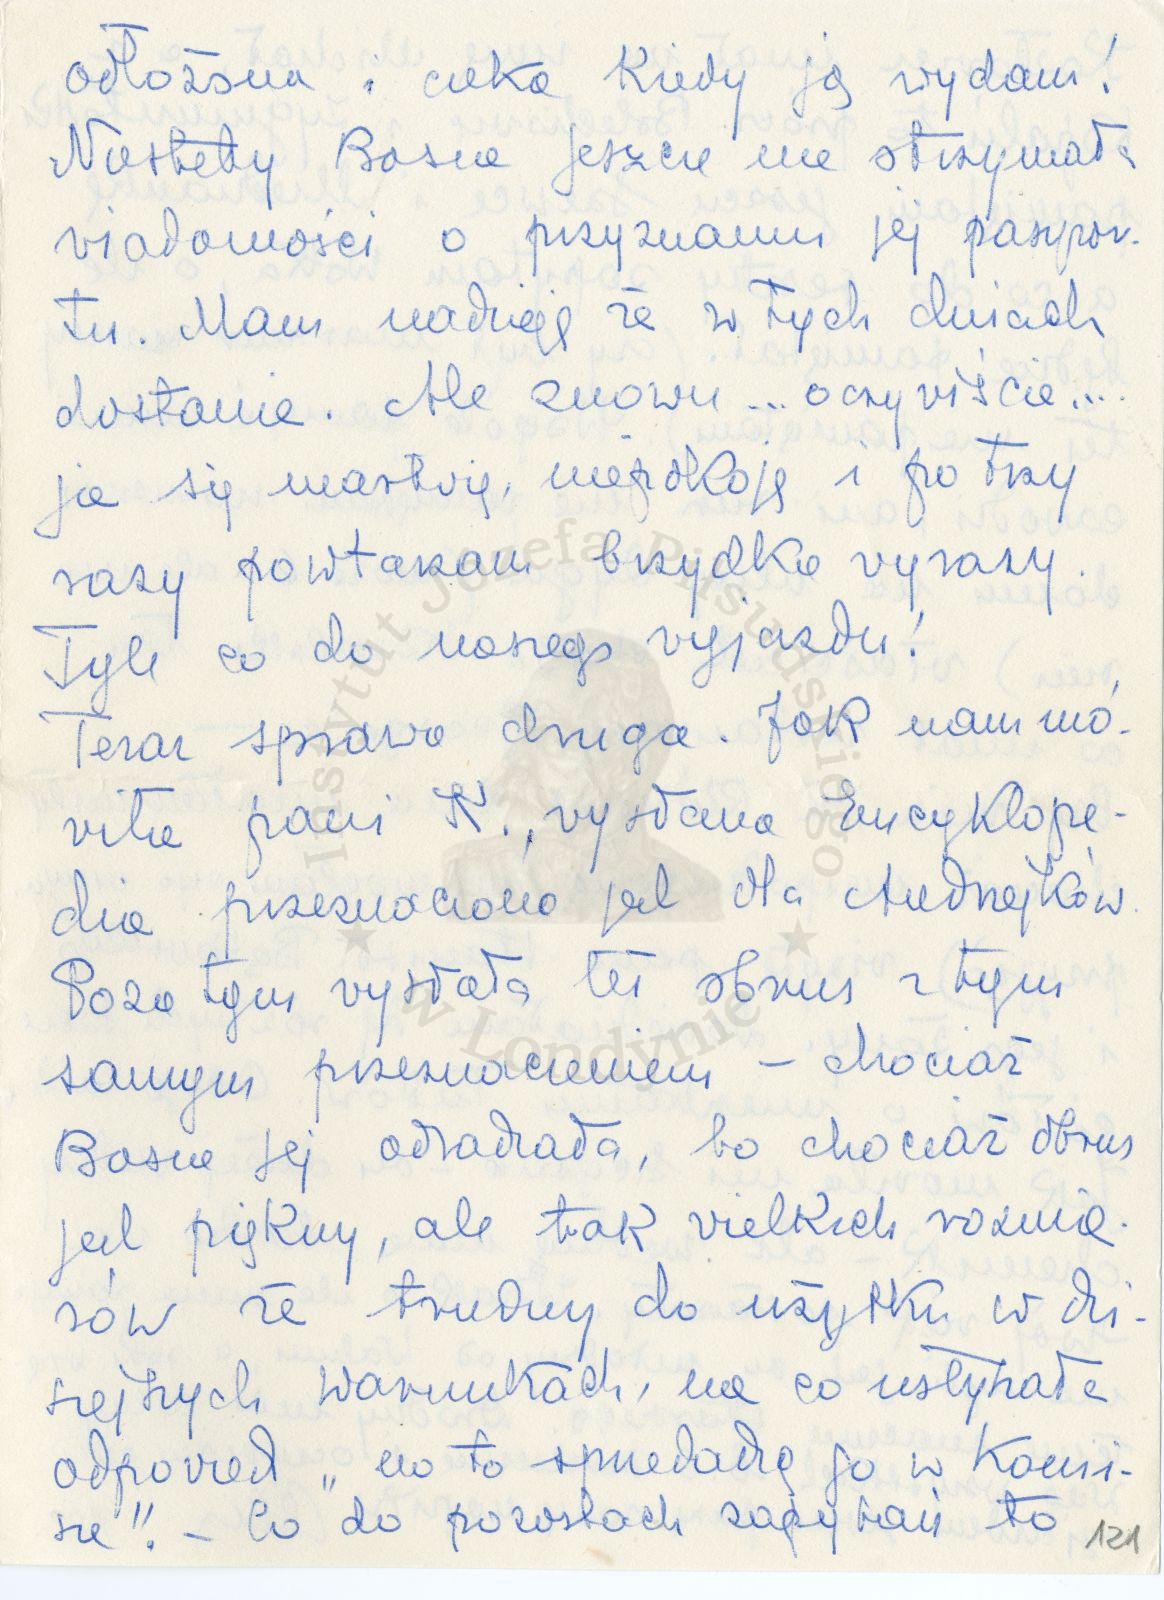 odłożona i czeka kiedy ją wydam!
Niestety Basia jeszcze nie otrzymała
wiadomości o przyznaniu jej paszpor-
tu. Mam nadzieję że w tych dniach
dostanie. Ale znowu... oczywiście...
ja się martwię, niepokoję i po trzy
razy powtarzam brzydkie wyrazy.
Tyle co do naszego wyjazdu!
Teraz sprawa druga. Jak nam mó-
wiła pani N., wysłana Encyklope-
dia przeznaczona jest dla Andrzejków.
Poza tym wysłała też obrus z tym
samym przeznaczeniem – chociaż
Basia jej odradzała, bo chociaż obrus
jest piękny, ale tak wielkich rozmia-
rów że trudny do użytku w dzi-
siejszych warunkach, na co usłyszała
odpowiedź „no to sprzedadzą go w Komi-
sie"! – Co do pozostałych zapytań to
121
Instytut Józefa Piłsudskiego
w Londynie